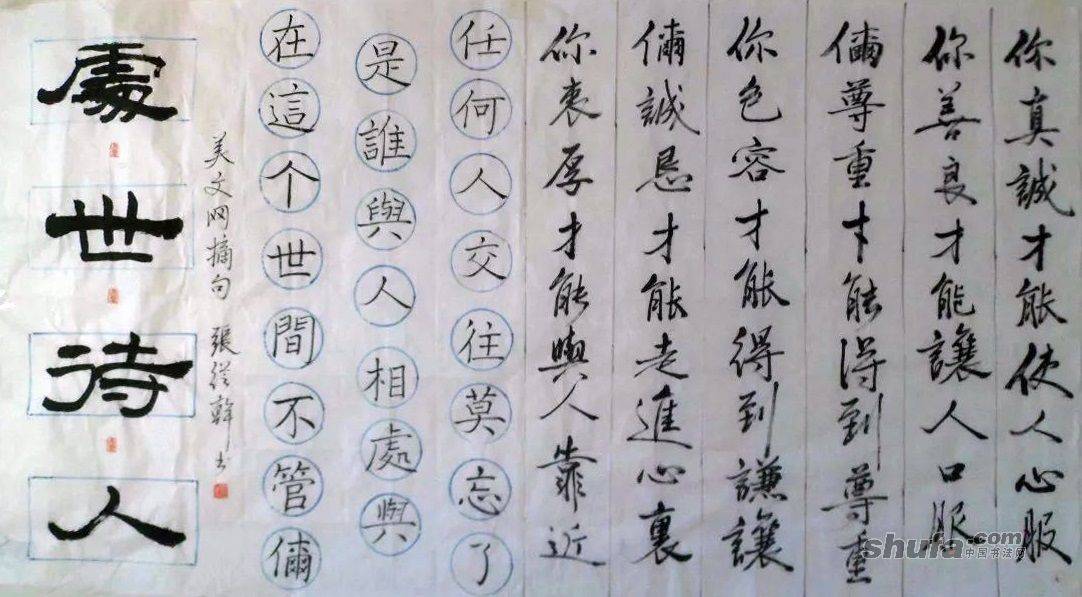 處世待人
美文网摘句 張從幹书
在這个世間不管儞
是誰與人相處與
任何人交往莫忘了
你衷厚才能與人靠近
儞誠恳才能走進心裏
你色容才能得到謙讓
儞尊重才能得到尊重
你善良才能讓人口服
你真誠才能使人心服
shufa.com
中国书法网